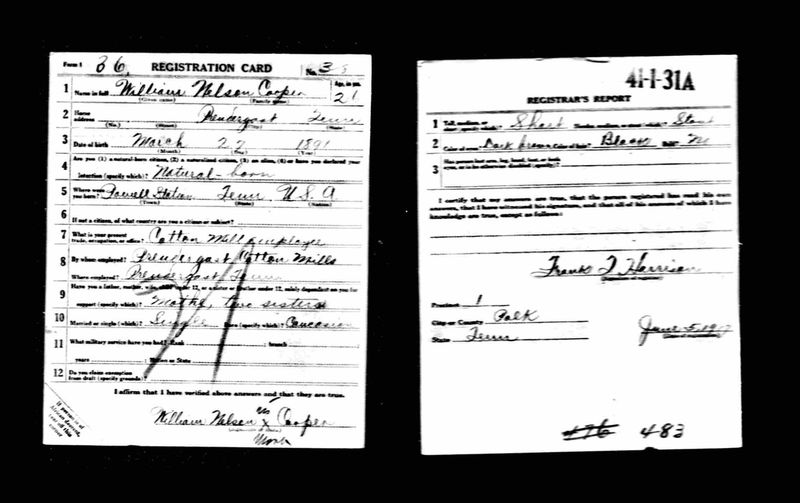 Form 1 36 REGISTRATION CARD No. 3
1 Name in full William Nelson Cooper Age, in yrs. 21
(Given name) (Family name)
2 Home address Prendergast Tenn
(No.) (Street) (City) (State)
3 Date of birth March 27 1891
(Month) (Day) (Year)
4 Are you (1) a natural-born citizen, (2) a naturalized citizen, (3) an alien, (4) or have you declared your
intention (specify which)? Natural-born
5 Where were you born? Powell Station Tenn U.S.A
(Town) (State) (Nation)
6 If not a citizen, of what country are you a citizen or subject?
7 What is your present trade, occupation, or office? Cotton Mill employee
8 By whom employed? Prendergast Cotton Mills
Where employed? Prendergast Tenn
9 Have you a father, mother, wife, child under 12, or a sister or brother under 12, solely dependent on you for
support (specify which)? Mother, two sisters
10 Married or single (which)? Single Race (specify which)? Caucasian
11 What military service have you had? Rank ; branch
years ; Nation or State
12 Do you claim exemption from draft (specify grounds)?
I affirm that I have verified above answers and that they are true.
William Nelson his x Cooper
mark
If person is of African descent, tear off this corner
41-1-31A
REGISTRAR'S REPORT
1 Tall, medium, or short (specify which)? Short Slender, medium, or stout (which)? Stout
2 Color of eyes? Dark brown Color of hair? Black Bald? No
3 Has person lost arm, leg, hand, foot, or both eyes, or is he otherwise disabled (specify)?
I certify that my answers are true, that the person registered has read his own
answers, that I have witnessed his signature, and that all of his answers of which I have
knowledge are true, except as follows:
Frank T Harrison
(Signature of registrar)
Precinct 1
City or County Polk
State Tenn June 5 1917
(Date of registration)
476 483